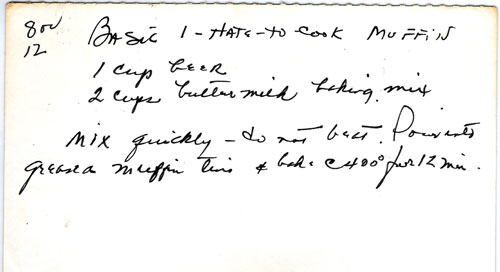 8 or
12
BASIC I-HATE-TO COOK MUFFIN
1 cup beer
2 cups buttermilk baking mix
Mix quickly - do not beat. Pour into
greased muffin tins & bake @ 400° for 12 min.